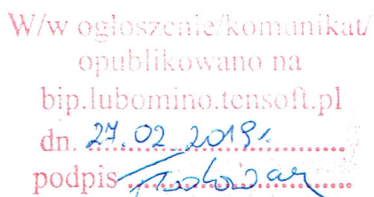 W/w ogłoszenie/komunikat/
opublikowano na
bip.lubomino.tensoft.pl
dn. 27.02.2019r.
podpis